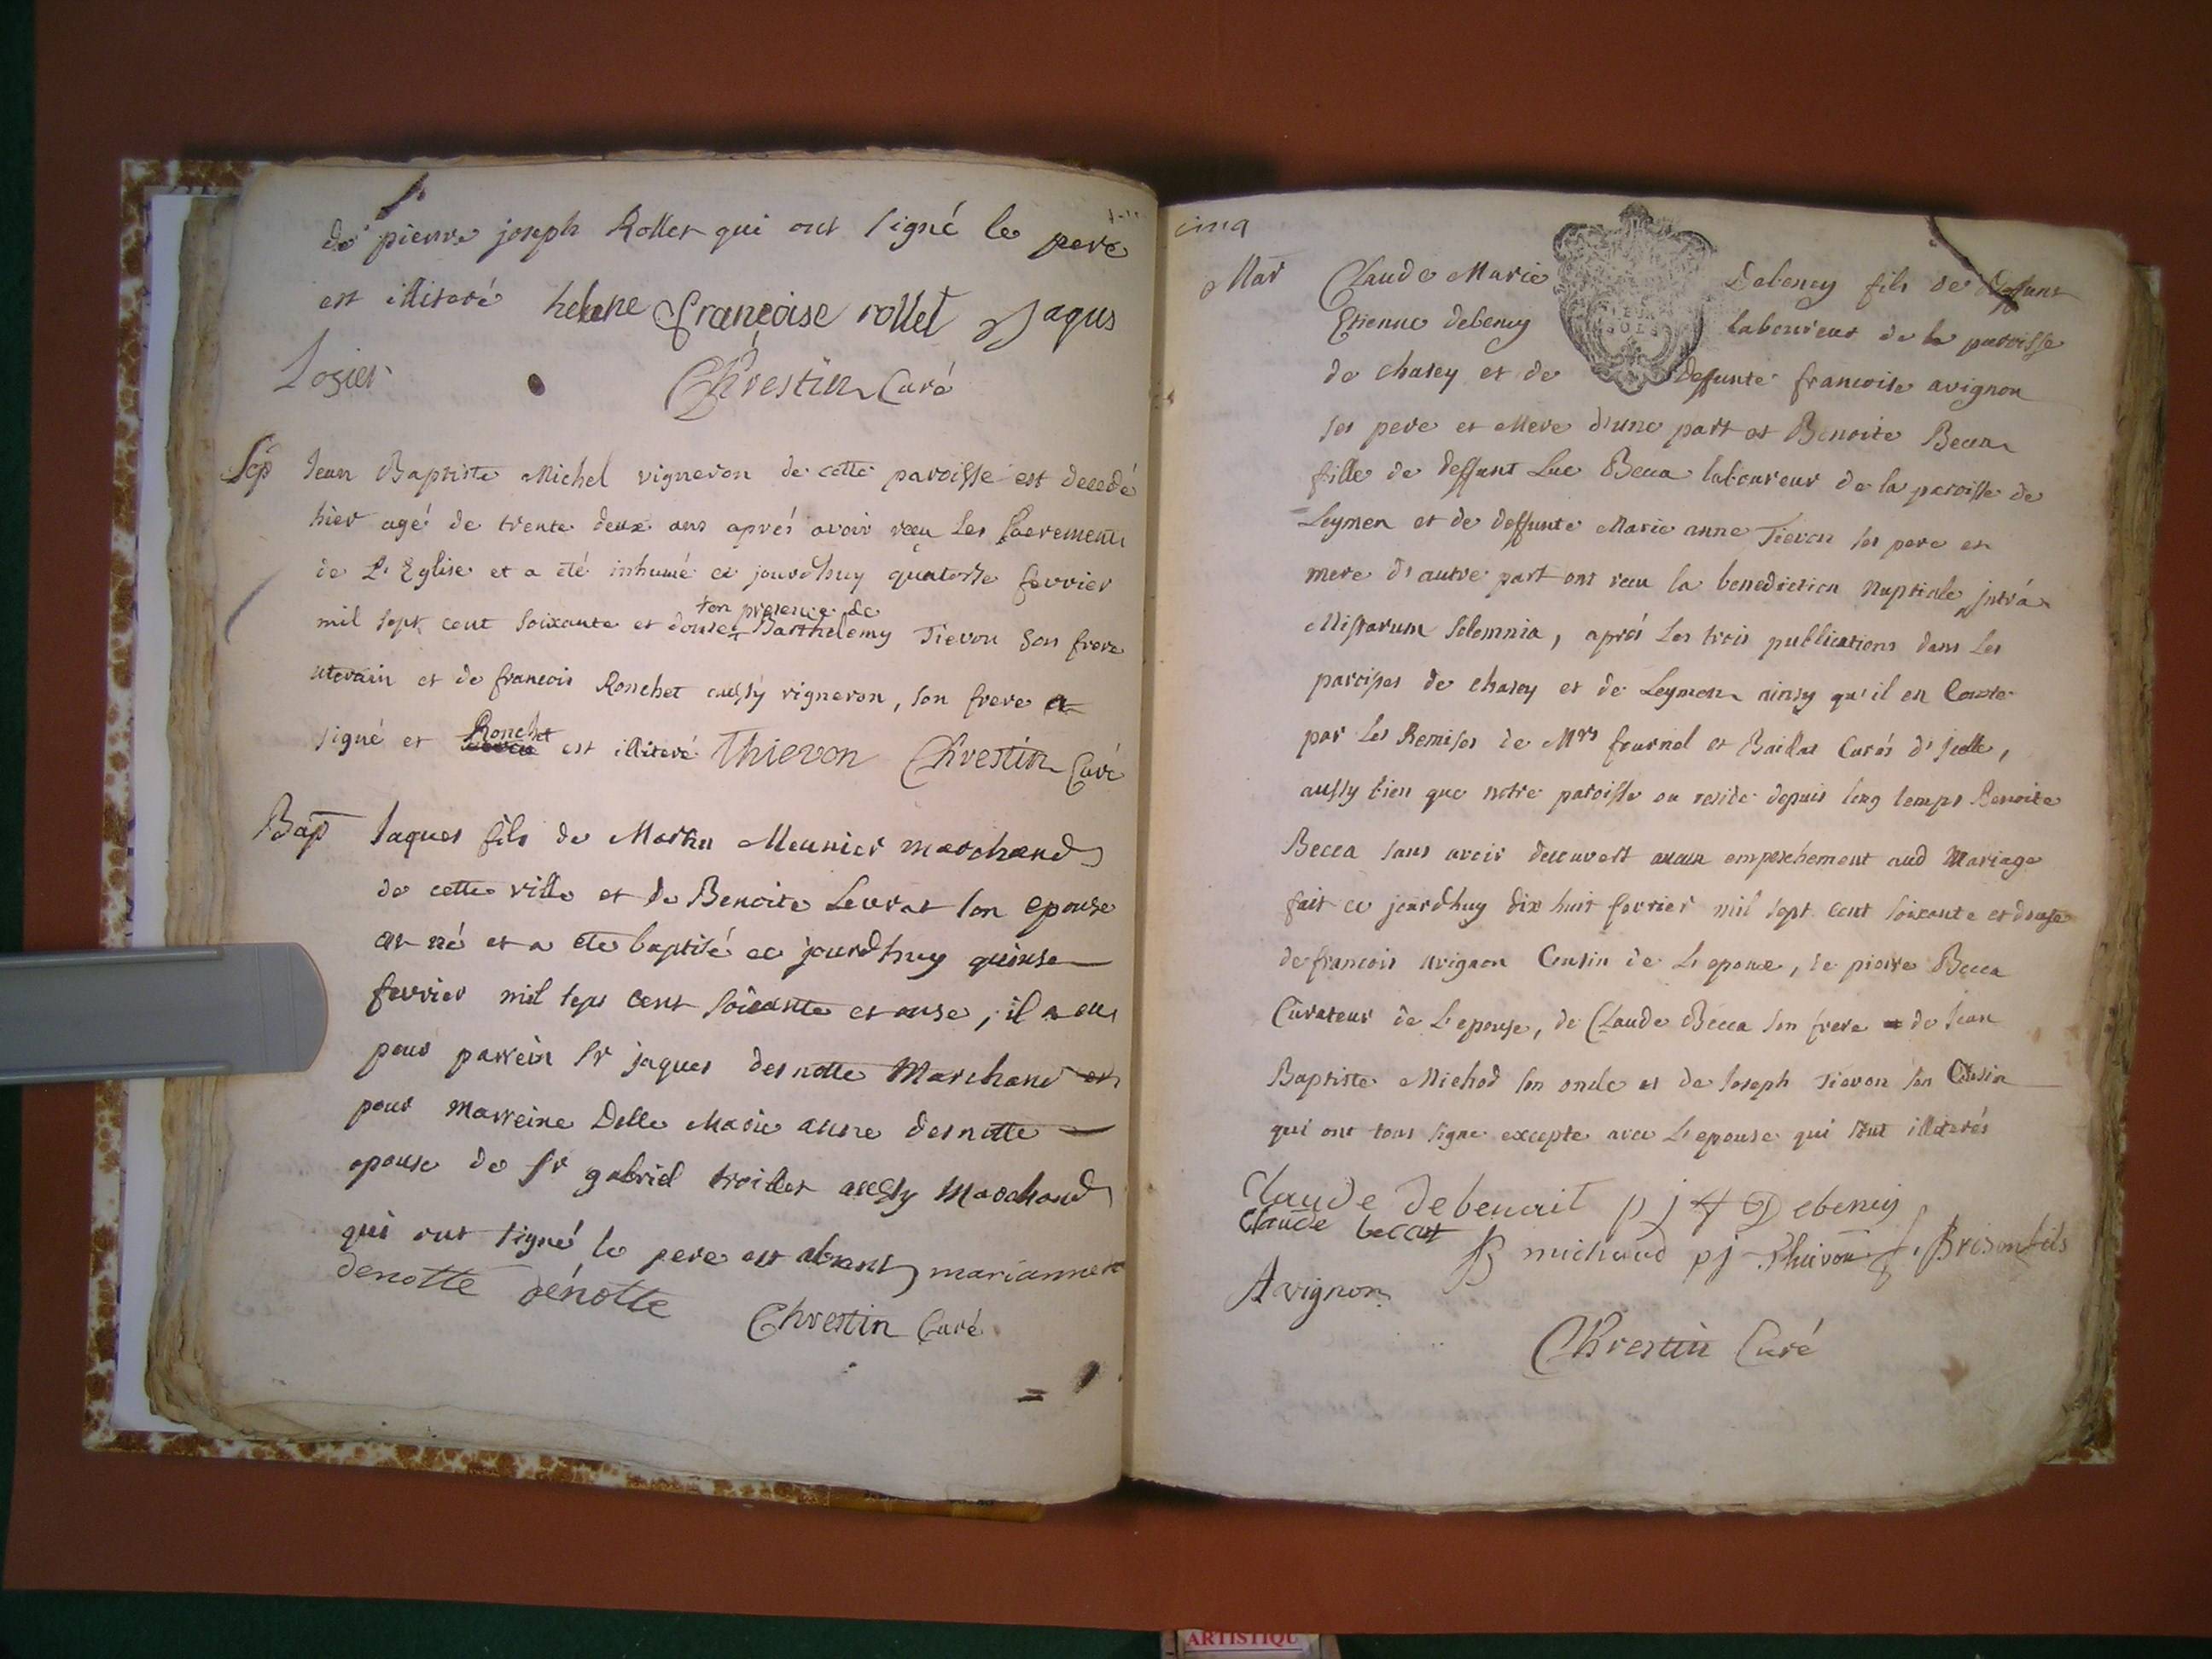 de pierre joseph Rollet qui ont signé le pere
est illiteré helene françoise rollet Jaqus
Logier Chrestin Curé
Sep Jean Baptiste Michel vigneron de cette paroisse est decedé
hier agé de trente deux ans aprés avoir reçu Les sacrements
de L'Eglise et a été inhumé ce jourdhuy quatorse fevrier
mil sept cent soixante et douse en presence de Barthelemy Tievon son frere
uterain et de francois Ronchet aussy vigneron, son frere a
signé et Ronchet est illiteré Thievon Chrestin Curé
Bap Jaques fils de Martin Meunier marchand
de cette ville et de Benoite Levrat son epouse
est né et a ete baptisé ce jourdhuy quinse
fevrier mil sept cent soixante et onse, il a eu
pour parrein sr jaques desnotte Marchand et
pour marreine Delle Marie anne desnotte
epouse de sr gabriel troillet aussy Marchand
qui ont signé le pere est absent marianne
denotte dénotte
Chrestin Curé
cinq
Mar Claude Marie Debeney fils de deffunt
Etienne debeney laboureur de la paroisse
de chasey et de deffunte francoise avignon
ses pere et Mere d'une part et Benoite Becca
fille de deffunt Luc Becca laboureur de la paroisse de
Leymen et de deffunte Marie anne Tievon ses pere et
mere d'autre part ont reçu la benediction Nuptiale jntrá
Missarum Solemnia, aprés Les trois publications dans Les
paroisses de chasey et de Leymen ainsy qu'il en Conste
par Les Remises de Mrs fournel et Baillat Curés d'jcelle,
aussy bien que notre paroisse ou reside depuis long temps Benoite
Becca sans avoir decouvert aucun empeschement aud Mariage
fait ce jourdhuy dix huit fevrier mil sept cent soixante et douse
de francois avignon Cousin de L'epoux, de pierre Becca
Curateur de L'epouse, de Claude Becca son frere de Jean
Baptiste Michod son oncle et de Joseph Tievon son Cousin
qui ont tous signe excepte avec L'epouse qui sont illiterés
Claude debenait p j Debeney
Claude beccat B michaud pj Thievon f. Brison fils
Avignon
Chrestin Curé
ARTISTIQU